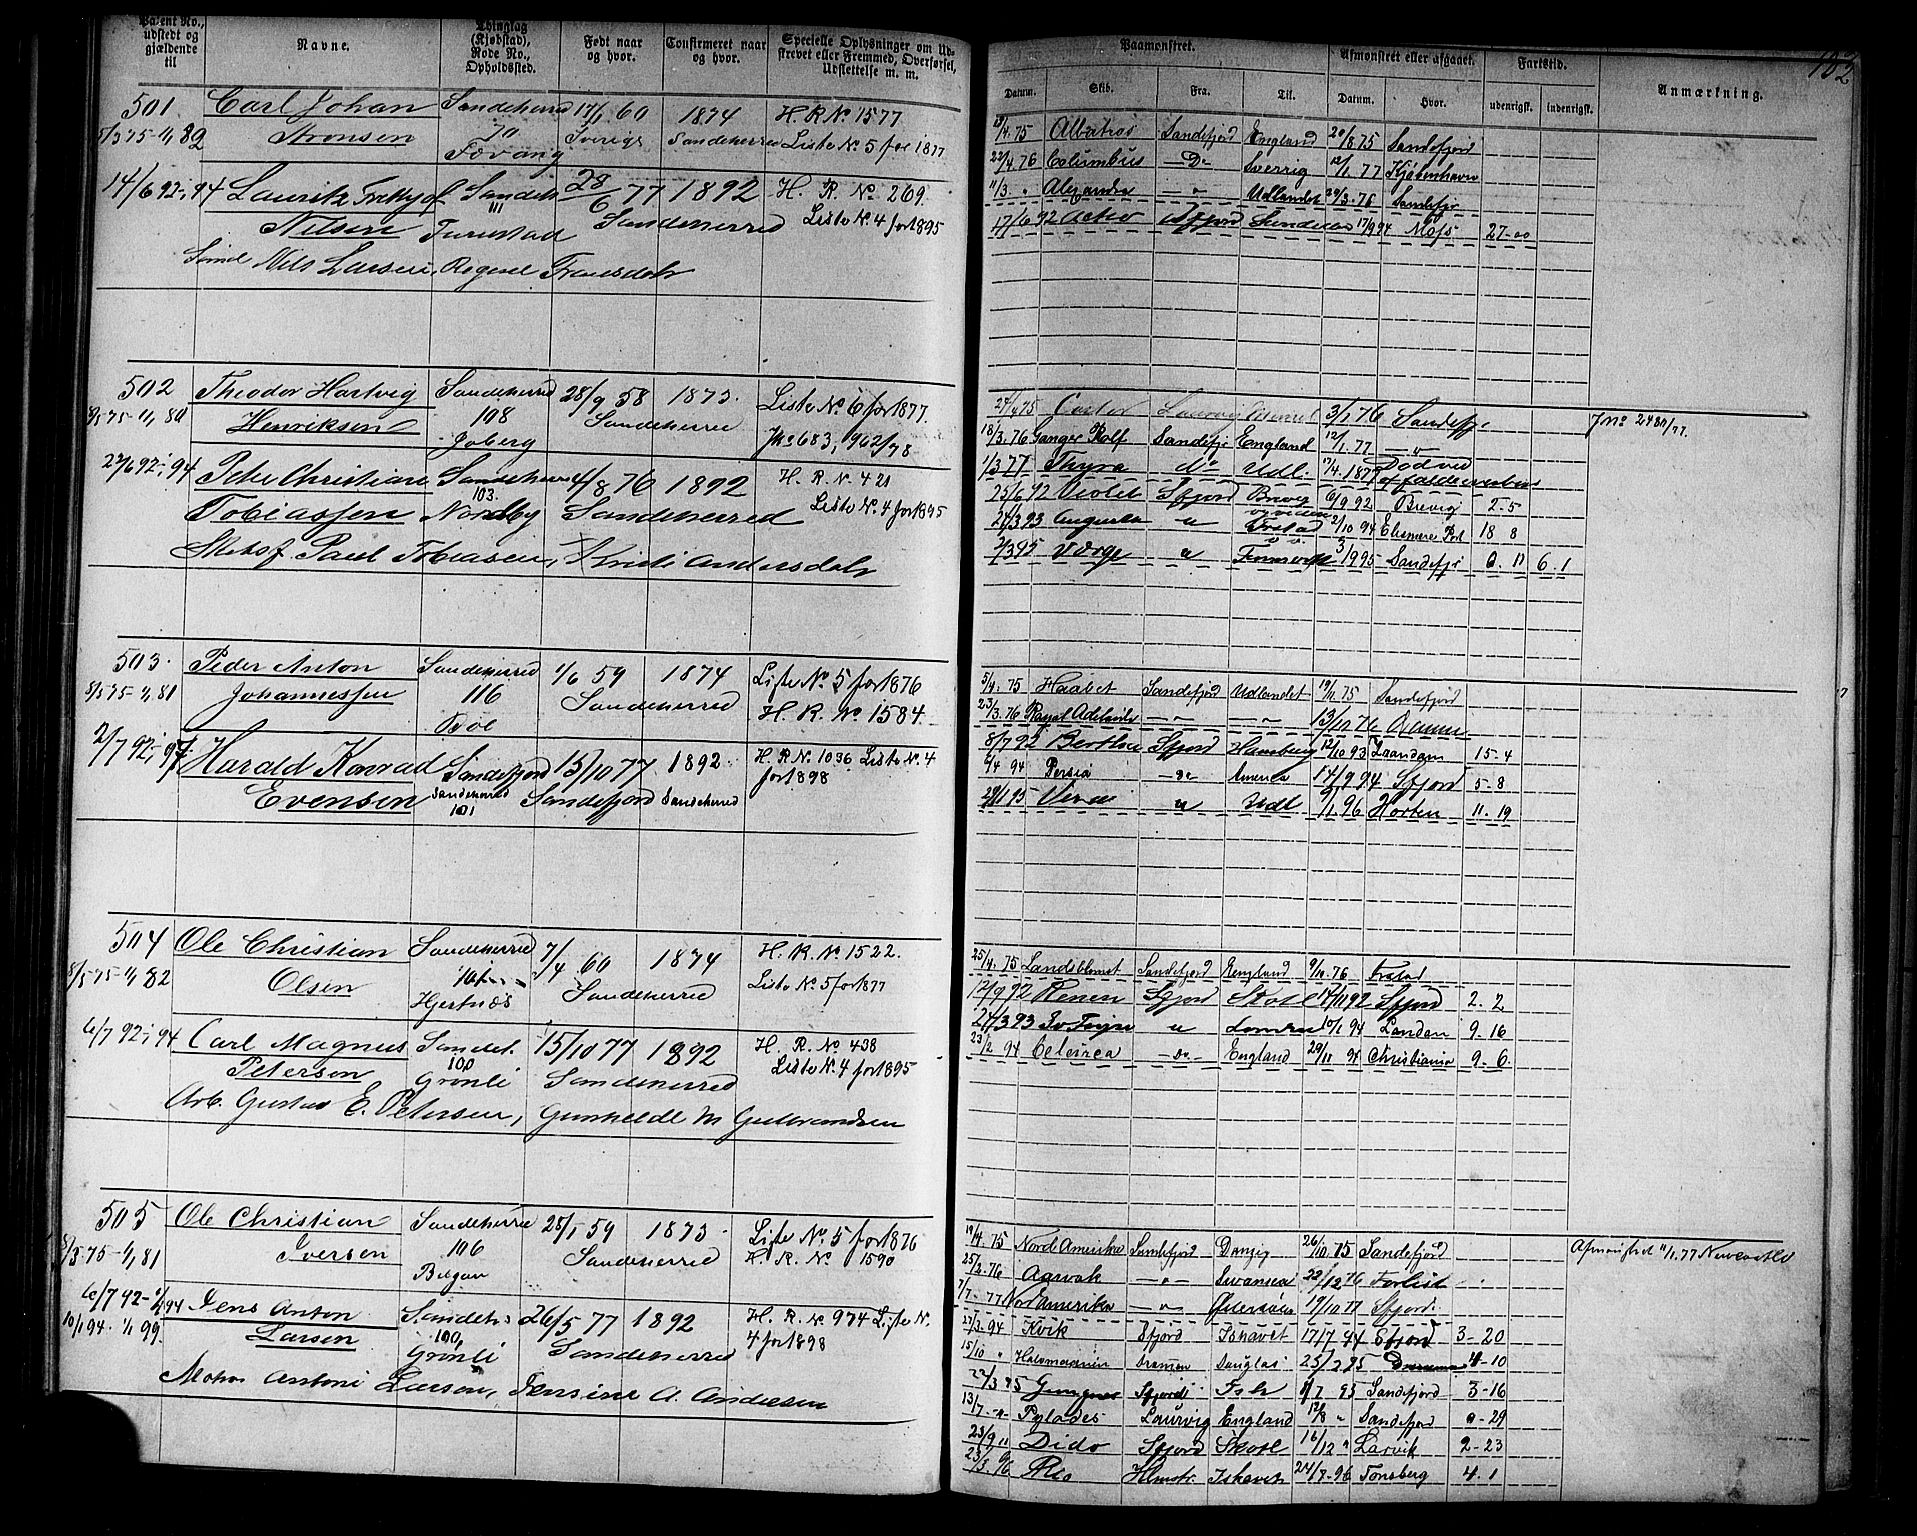 Patent No., udstedt og gjældende til
Navne.
Thinglag (Kjøbstad), Rode No., Opholdssted.
Født naar og hvor.
Confirmeret naar og hvor.
Specielle Oplysninger om Udskrevet eller Fremmed, Overførsel, Udslettelse m. m.
501 Carl Johan Sandeherred 17/1 60 1874 H. R. No 1577
5/3 75 - 1/1 82 Aronsen 70 Sverige Sandeherred Liste No 5 for 1877
14/6 92-, 94 Lauritz Sandeh. 28/6 77 1892 H. R. No 269.
Nilsen 111 Sandeherred Liste No. 4 for 1895
Nils Larsen,
502 Theodor Hartvig Sandeherred 28/9 58 1873. Liste No 6 for 1877.
8/5 75 - 1/1 80 Henriksen 108 Sandeherred
Joberg Jno 683, 962/78
27/6 92-, 94 Peter Christian 4/8 76 1892 H. R. No. 421
Tobiassen 103. Nordby Sandeherred Liste No. 4 for 1895
Paul Tobiasen, Andersdatr
503. Peder Anton Sandeherred 1/6 59 1874 Liste No. 5 for 1876
8/5 75 - 1/1 81 Johannessen 116 Sandeherred H. R. No 1584.
Bøe
2/7 92-, 97. Harald Konrad Sandefjord 15/10 77 1892. H. R. No 1036 Liste No. 4 for 1898
Evensen Sandeherred 101 Sandefjord Sandeherred
504 Ole Christian Sandeherred 7/4 60 1874 H. R. No 1522.
8/5 75 - 1/1 82 Olsen Sandeherred Liste No. 5 for 1877
Hjertnæs
6/7 92-, 94 Carl Magnus Sandeh. 15/10 77 1892 H. R. No 438
Petersen 100 Grønli Sandeherred Liste No. 4 for 1895
Arb. Gustav E. Petersen, M Gulbrandsen
505 Ole Christian Sandeherred 28/1 59 1873. Liste No. 5 for 1876
8/5 75 - 1/1 81 Iversen 106 Sandeherred H. R. No 1590
6/7 92 - 1/1 94 Jens Anton Sandeh. 26/5 77 1892 H. R. No 974 Liste No. 4 for 1898
10/1 94. 1/1 99. Larsen 100, Grønli Sandeherred
Antoni Larsen, Jensine A. Andersen
Paamønstret.
Afmønstret eller afgaaet.
Fartstid.
Anmærkning.
Datum. Skib. Fra. Til. Datum. Hvor. udenrigsk. indenrigsk.
Albatros Sandefjord England 20/8 75 Sandefjord
22/4 76 Columbus —Do Sverrig 12/1 77 Kjøbenhavn
11/3 " Alexandra — " Udlandet 29/3 76 Sandefjr
17/6 92 17/9 94 Moss 27-00
Castor Laurvig 3/1 76 Sandefjr
18/3. 76 Ganger Rolf Sandefjr England 12/1 77 — " —
1/3 77 Thyra Do Udl. 17/4. 1877 Død ved
25/6 92 Violet Sfjord Brevig 6/9 92 Brevig 2-5
27/3 93 Augusta " 2/10 94 Port 18 8
7/3 95 Værge " 3/9 95 Sandefjr 0. 11 6. 1
5/4. 75 Haabet Sandefjord Udlandet 19/11 75 Sandefjord
23/3. 76 Royal Adelaide — " — — " — 13/12 76
8/7 92 Bertha Sfjord Hamburg 12/10 93 Zaandam 15-4
6/4 94 Persia —Do America 14/9 94 Sfjord 5-8
29/1 95 " Udl 2/1 96 Horten 11. 19
25/4. 75 Landsblomst Sandefjord England 9/11. 76
12/9 92 Sfjord Skotl 14/11 92 Sfjord 2. 2
24/3 93 " 10/1 94 London 9. 16
23/2 94 —Do England 29/11 94 Christiania 9-6
19/4. 75 Nord Amerika Sandefjord Danzig 26/10. 75 Sandefjord Afmønstret 11/1. 77 Newcastle
25/2. 76 Aarvak — " — Swansea 22/12 76 Forlist
7/7 - 77 Nordamerika — " — Østersøen 19/10 77 Sfjord
27/3. 94 Kvik Sfjord Ishavet 17/7 94 Sfjord 3-20
15/10 " Dramen Douglas 25/2 95 4-10
27/3 95 Gungner Sfjord Ish 9/7 95 Sandefjord 3-16
13/7 - " Pylades Laurvig England 12/8 " Sandefjord 0-29
23/9 " Dido Sfjord Skotl 16/12 " Larvik 2-23
23/3. 96 Rio Ishavet 24/7-96 Tønsberg 4. 1